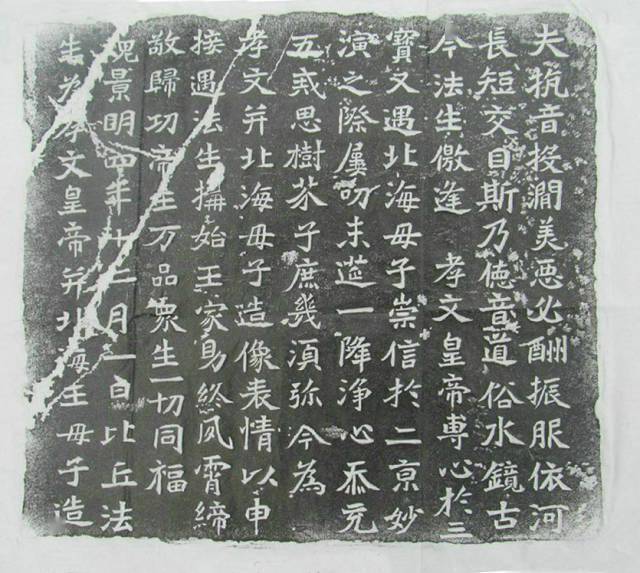 夫抗音投澗美惡必酬振服依河
長短交目斯乃徳音道俗水鏡古
今法生儌逢　孝文皇帝專心於三
寶又遇北海母子崇信於二京妙
演之際屢叨末莚一降淨心忝充
五戒思樹芥子庶幾湏弥今為
孝文并北海母子造像表情以申
接遇法生搆始王家易終夙霄締
敬歸功帝王万品衆生一切同福
魏景明四年十二月一日比丘法
生為孝文皇帝并北海王母子造